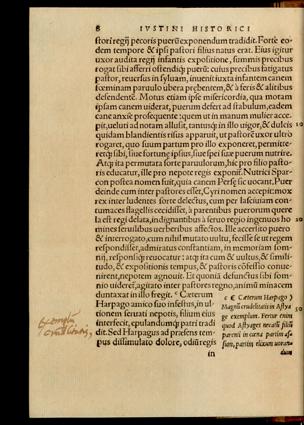 8 IVSTINI HISTORICI
stori regij pecoris puerũ exponendum tradidit. Forte eo-
dem tempore & ipsi pastori filius natus erat. Eius igitur
vxor audita regij infantis expositione, summis precibus
rogat sibi afferri ostendiq; puerũ: cuius precibus fatigatus
pastor, reuersus in syluam, inuenit iuxta infantem canem
fœminam paruulo vbera præbentem, & à feris & alitibus
defendentẽ. Motus etiam ipse misericordia, qua motam
ipsam canem uiderat, puerum defert ad stabulum, eadem
cane anxiè prosequente: quem ut in manum mulier acce-
pit, ueluti ad notam allusit, tantusq; in illo uigor, & dulcis
quidam blandientis risus apparuit, ut pastorẽ uxor ultro
rogaret, quo suum partum pro illo exponeret, permitte-
retq; sibi, siue fortunę ipsius, siue spei suæ puerum nutrire.
Atq; ita permutata sorte paruulorum, hic pro filio pasto-
ris educatur, ille pro nepote regis exponit̃. Nutrici Spar-
con postea nomen fuit, quia canem Persę sic uocant. Puer
deinde cum inter pastores esset, Cyri nomen accepit: mox
rex inter ludentes sorte delectus, cum per lasciuiam con-
tumaces flagellis cecidisset, à parentibus puerorum quere
la est regi delata, indignantibus à seruo regio ingenuos ho
mines seruilibus uerberibus affectos. Ille accersito puero
& interrogato, cum nihil mutato uultu, fecisse se ut regem
respondisset, admiratus constantiam, in memoriam som-
nij, responsiq; reuocatur: atq; ita cum & uultus, & simili-
tudo, & expositionis tempus, & pastoris cõfessio conue-
nirent, nepotem agnouit. Et quoniã defunctus sibi som-
nio uideret̃, agitato inter pastores regno, animũ minacem
duntaxat in illo fregit. Cæterum
Harpago amico suo infestus, in ul-
tionem seruati nepotis, filium eius
interfecit, epulandumq; patri tradi
dit. Sed Harpagus ad præsens tem-
pus dissimulato dolore, odiũ regis
in
10
20
Cæterum Harpago
Magni crudelitatis in Astya
ge exemplum. Fertur enim
quod Astyages necati filij
parenti in cœna partim as-
sam, partim elixam
30
exemplũ
crudelitatis,